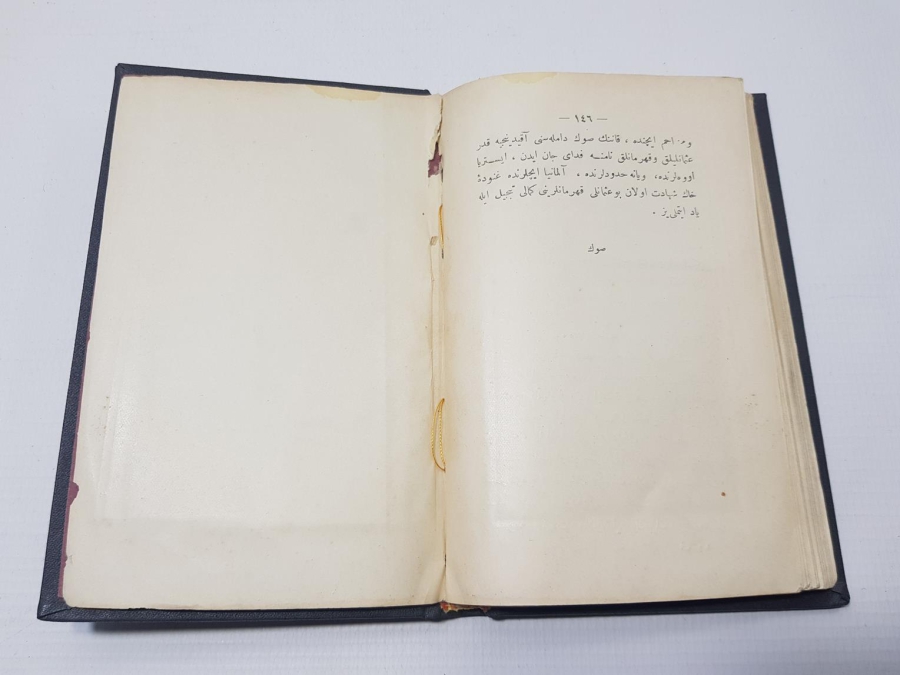 — ١٤٦ —
ومزاحم ایچنده ، قاننك صوك داملەسنی آقیدینجیه قدر
عثمانلیلق وقهرمانلق نامنه فدای جان ایدن . ایستریا
اووەلرنده، ویانه حدودلرنده . آلمانیا ایچلرنده غنودهٔ
خاك شهادت اولان بو عثمانلی قهرمانلرینی كمالی تبجیل ایله
یاد ایتملی یز .
صوك